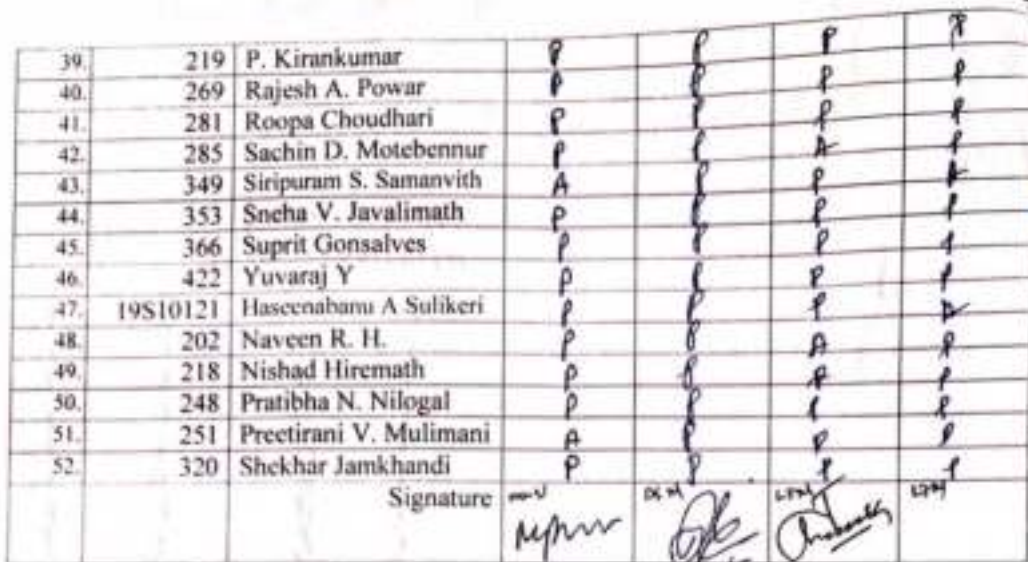 39. 219 P. Kirankumar P P P P
40. 269 Rajesh A. Powar P P P P
41. 281 Roopa Choudhari P P P P
42. 285 Sachin D. Motebennur P P A P
43. 349 Siripuram S. Samanvith A P P A
44. 353 Sneha V. Javalimath P P P P
45. 366 Suprit Gonsalves P P P P
46. 422 Yuvaraj Y P P P P
47. 19S10121 Haseenabanu A Sulikeri P P P A
48. 202 Naveen R. H. P P A P
49. 218 Nishad Hiremath P P P
50. 248 Pratibha N. Nilogal P P P P
51. 251 Preetirani V. Mulimani A P P P
52. 320 Shekhar Jamkhandi P P P P
Signature